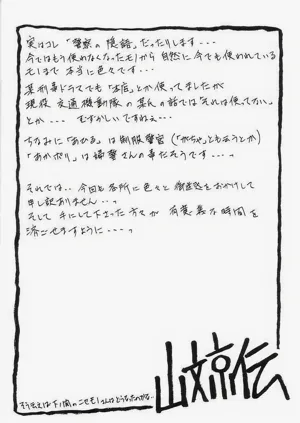 実はコレ「警察の隠語」だったりします...
今ではもう使われなくなったモノから自然に今でも使われている
モノまで本当に色々です...
某刑事ドラマでも「本店」とか使ってましたが
現役交通機動隊の某氏の話では「それは使ってない」
とか... むずかしいですねぇ...
ちなみに「あひる」は制服警官(「がちゃ」ともゆうとか)
「あかポリ」は婦警さんの事だそうです...っ
それでは.. 今回も各所に色々と御迷惑をおかけして
申し訳ありません...っ
そして手にして下さった方々が 有意義な時間を
過ごせますように...っ
そういえば下ノ関のニセモノさんはどうなったのかな..
山文京伝